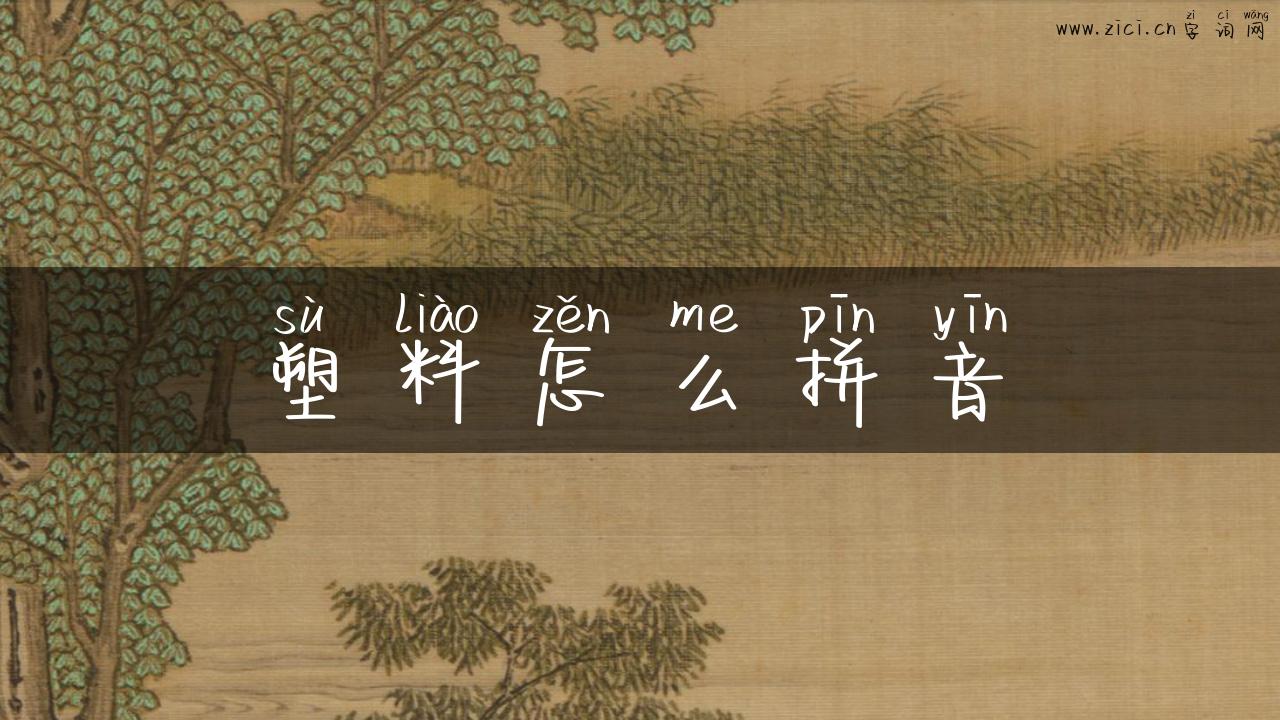 zì cí wǎng
www.zici.cn字词网
sù liào zěn me pīn yīn
塑料怎么拼音